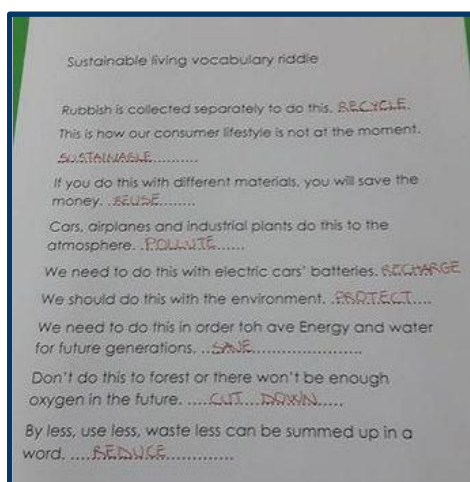 Sustainable living vocabulary riddle
Rubbish is collected separately to do this. RECYCLE.
This is how our consumer lifestyle is not at the moment.
SUSTAINABLE...........
If you do this with different materials, you will save the
money. ..REUSE........
Cars, airplanes and industrial plants do this to the
atmosphere. ..POLLUTE......
We need to do this with electric cars' batteries. RECHARGE
We should do this with the environment. ..PROTECT....
We need to do this in order toh ave Energy and water
for future generations. ...SAVE........................
Don't do this to forest or there won't be enough
oxygen in the future. .....CUT...DOWN......
By less, use less, waste less can be summed up in a
word. .....REDUCE...............